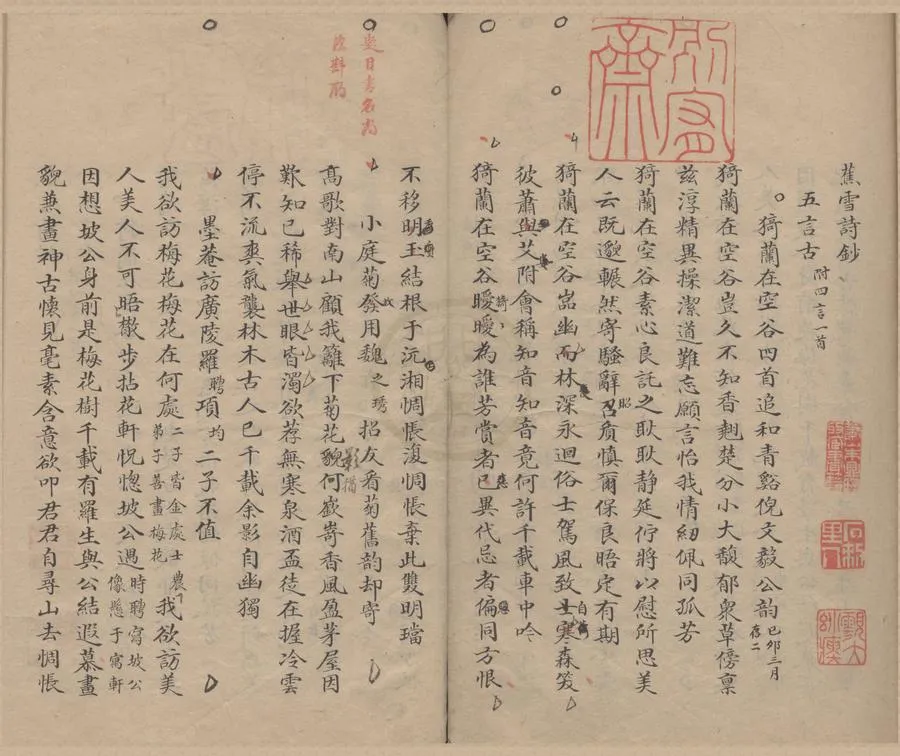 蕉雪詩鈔
五言古 附四言一首
猗蘭在空谷四首追和青谿倪文毅公韵 己卯三月存二
猗蘭在空谷豈久不知香翹楚分小大馥郁衆草傍稟
茲淳精異操潔道難忘願言怡我情紉佩同孤芳
猗蘭在空谷素心良託之耿耿静延佇將以慰所思美
人云既邈輾然寄騷辭召貭慎爾保良晤定有期
昭
猗蘭在空谷嵓幽而林深永迴俗士駕風致士寒森笅
自
彼蕭與艾附會稱知音知音竟何許千載車中吟
猗
猗蘭在空谷曖曖為誰芳賞者已異代忌者偏同方恨
不移明玉結根于沅湘惆悵復惆悵棄此雙明璫
小庭菊發用魏之琇招友看菊舊韵却寄
高歌對南山顧我籬下菊花貌何嶔奇香風盈茅屋因
影
歎知己稀舉世眼皆濁欲荐無寒泉酒盃徒在握冷雲
停不流爽氣襲林木古人已千載余影自幽獨
墨菴訪廣陵羅聘項均二子不值
我欲訪梅花梅花在何處 二子皆金處士農弟子善畫梅花 我欲訪美
人美人不可晤散步拈花軒怳惚坡公遇 時聘寫坡公像懸于寓軒
因想坡公身前是梅花樹千載有羅生與公結遐慕畫
貌兼畫神古懷見毫素含意欲叩君君自尋山去惆悵